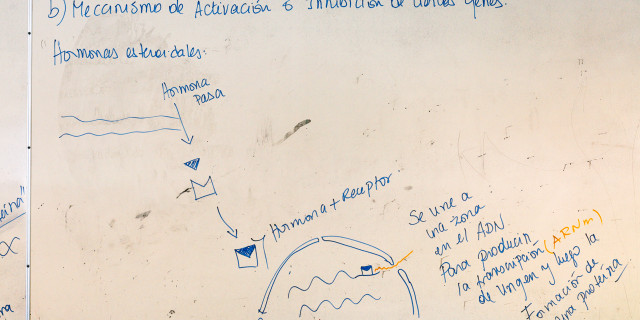 b) Mecanismo de Activación o Inhibición de varios genes.
Hormonas esteroidales.
Hormona
Pasa
Hormona + Receptor
Se une a
una zona
en el ADN
Para producir
la transcripción (ARNm)
de un gen y luego la
Formación de
una proteína